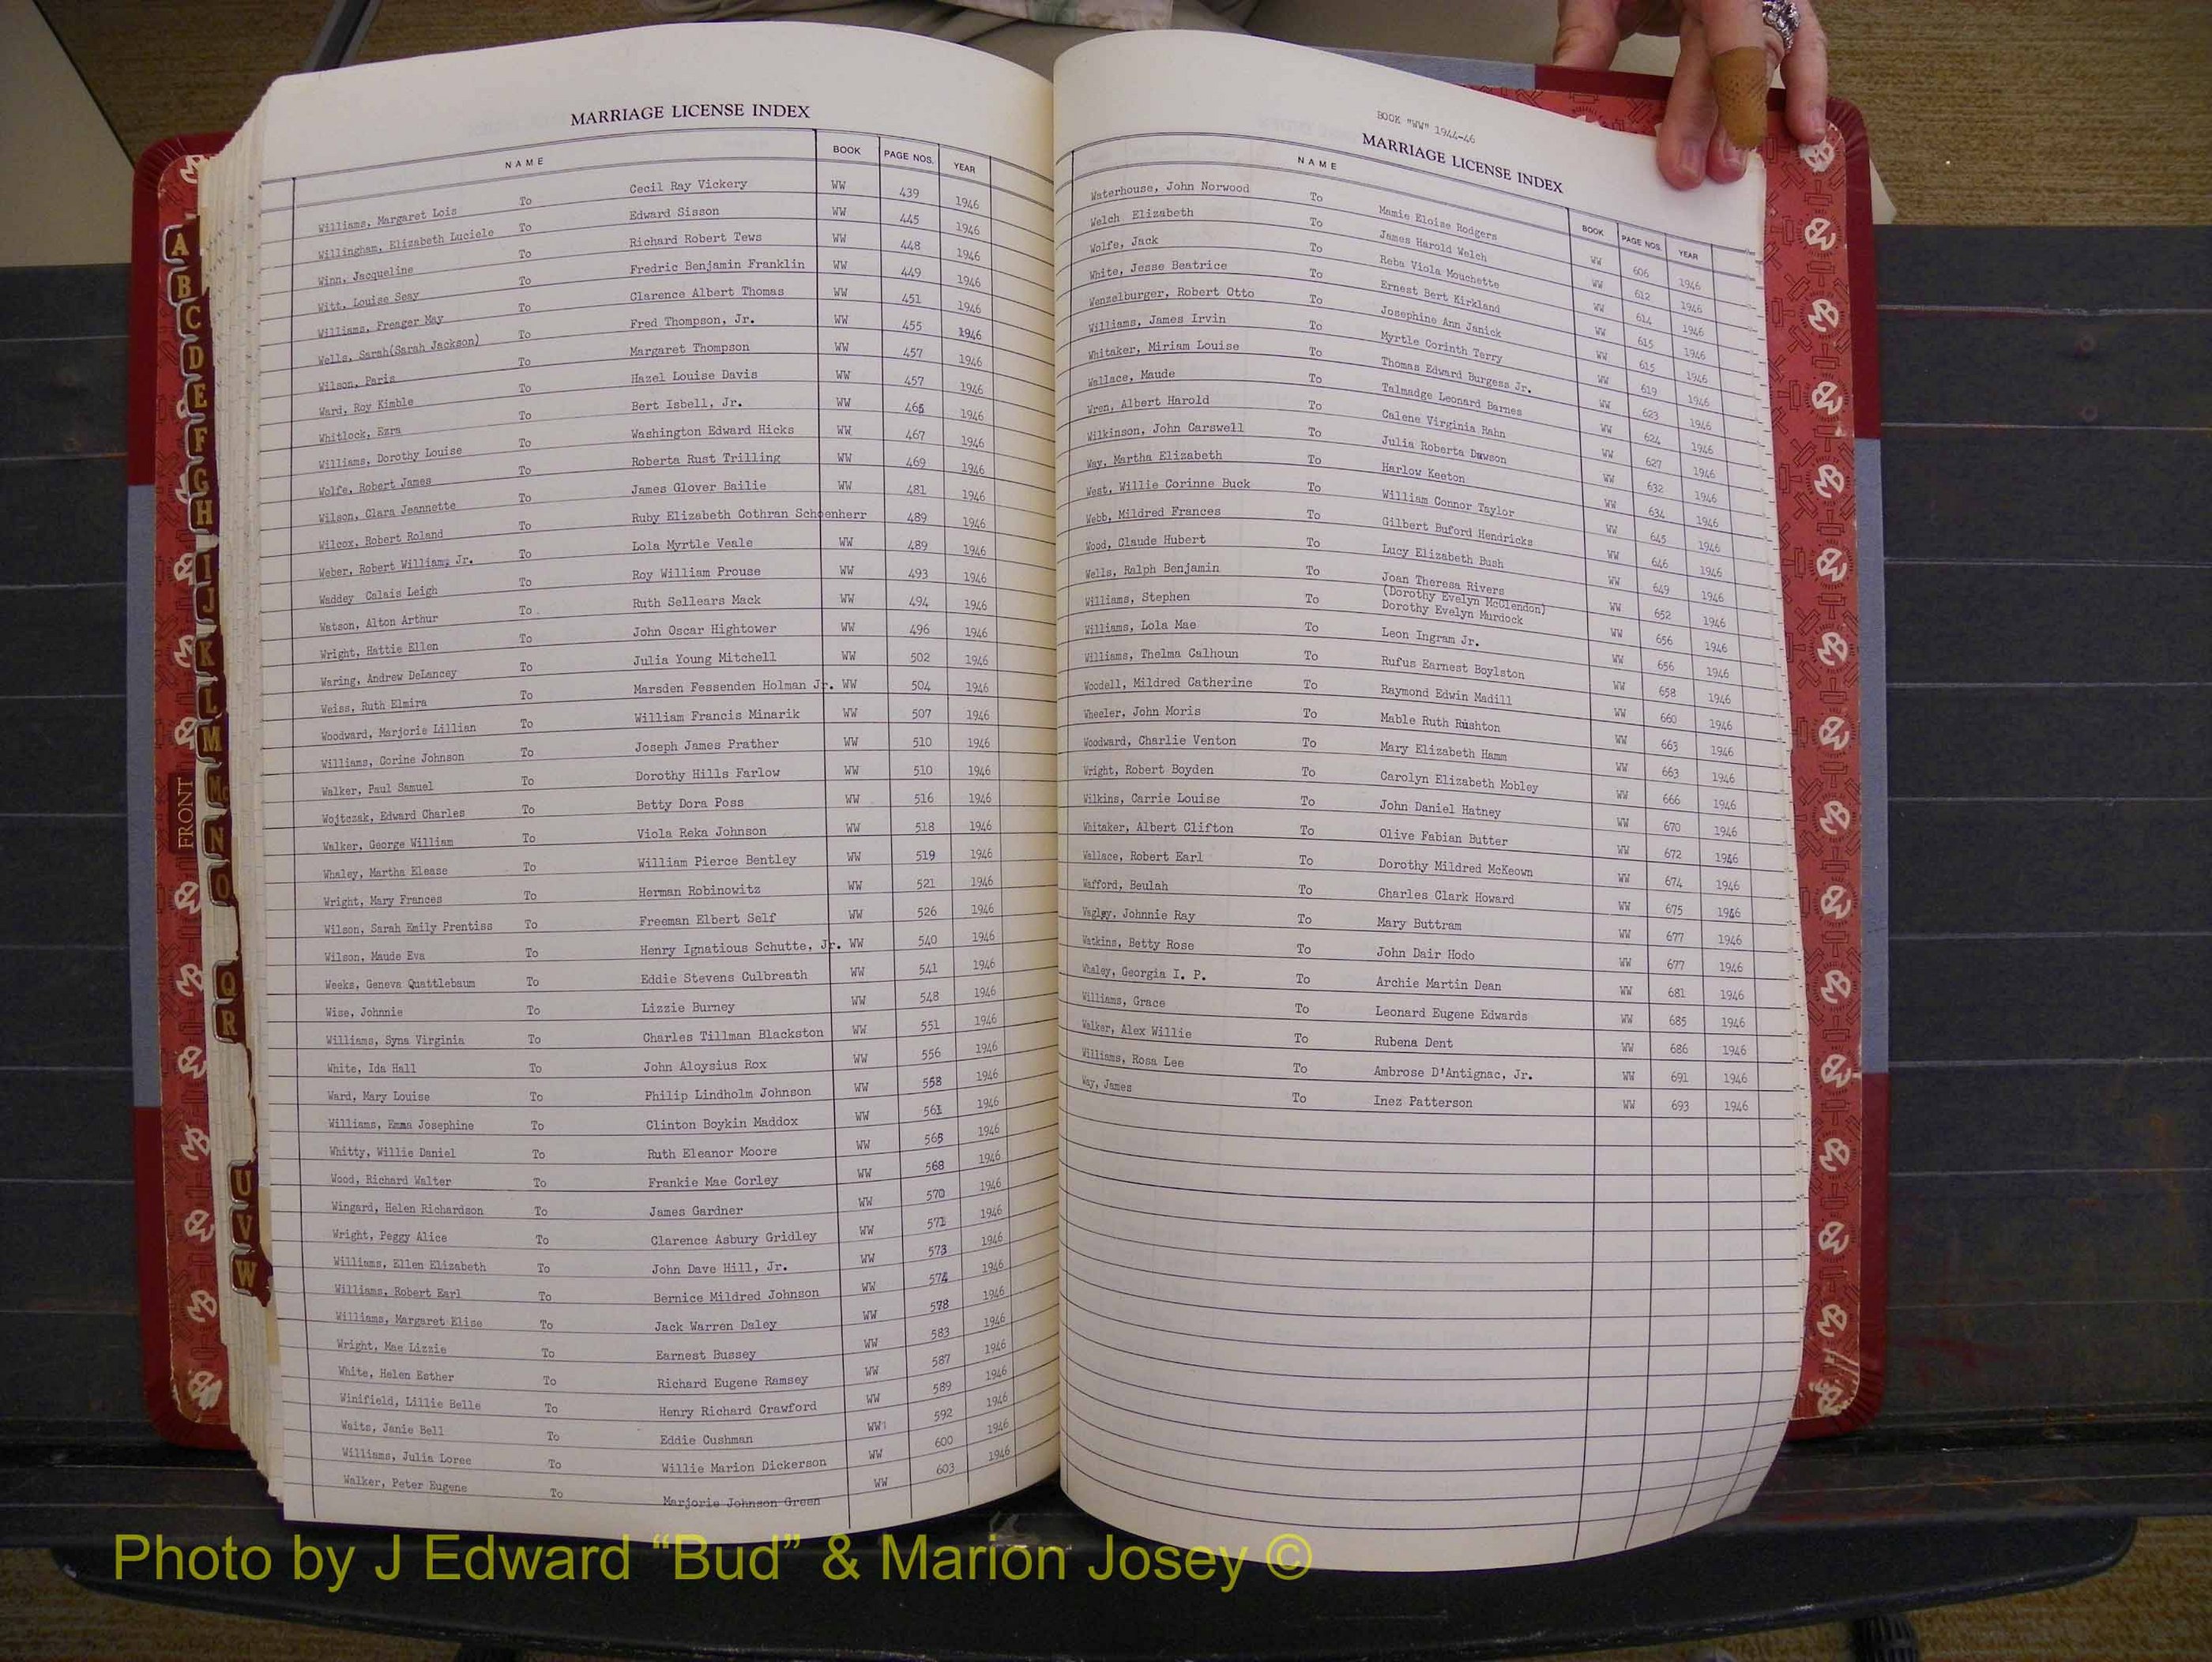 MARRIAGE LICENSE INDEX
NAME BOOK PAGE NOS. YEAR
Williams, Margaret Lois To Cecil Ray Vickery WW 439 1946
Willingham, Elizabeth Luciele To Edward Sisson WW 445 1946
Winn, Jacqueline To Richard Robert Tews WW 448 1946
Witt, Louise Seay To Fredric Benjamin Franklin WW 449 1946
Williams, Freager May To Clarence Albert Thomas WW 451 1946
Wells, Sarah(Sarah Jackson) To Fred Thompson, Jr. WW 455 1946
Wilson, Paris To Margaret Thompson WW 457 1946
Ward, Roy Kimble To Hazel Louise Davis WW 457 1946
Whitlock, Ezra To Bert Isbell, Jr. WW 465 1946
Williams, Dorothy Louise To Washington Edward Hicks WW 467 1946
Wolfe, Robert James To Roberta Rust Trilling WW 469 1946
Wilson, Clara Jeannette To James Glover Bailie WW 481 1946
Wilcox, Robert Roland To Ruby Elizabeth Cothran Schoenherr 489 1946
Weber, Robert William, Jr. To Lola Myrtle Veale WW 489 1946
Waddey Calais Leigh To Roy William Prouse WW 493 1946
Watson, Alton Arthur To Ruth Sellears Mack WW 494 1946
Wright, Hattie Ellen To John Oscar Hightower WW 496 1946
Waring, Andrew DeLancey To Julia Young Mitchell WW 502 1946
Weiss, Ruth Elmira To Marsden Fessenden Holman Jr. WW 504 1946
Woodward, Marjorie Lillian To William Francis Minarik WW 507 1946
Williams, Corine Johnson To Joseph James Prather WW 510 1946
Walker, Paul Samuel To Dorothy Hills Farlow WW 510 1946
Wojtczak, Edward Charles To Betty Dora Poss WW 516 1946
Walker, George William To Viola Reka Johnson WW 518 1946
Whaley, Martha Elease To William Pierce Bentley WW 519 1946
Wright, Mary Frances To Herman Robinowitz WW 521 1946
Wilson, Sarah Emily Prentiss To Freeman Elbert Self WW 526 1946
Wilson, Maude Eva To Henry Ignatious Schutte, Jr. WW 540 1946
Weeks, Geneva Quattlebaum To Eddie Stevens Culbreath WW 541 1946
Wise, Johnnie To Lizzie Burney WW 548 1946
Williams, Syna Virginia To Charles Tillman Blackston WW 551 1946
White, Ida Hall To John Aloysius Rox WW 556 1946
Ward, Mary Louise To Philip Lindholm Johnson WW 558 1946
Williams, Emma Josephine To Clinton Boykin Maddox WW 561 1946
Whitty, Willie Daniel To Ruth Eleanor Moore WW 565 1946
Wood, Richard Walter To Frankie Mae Corley WW 568 1946
Wingard, Helen Richardson To James Gardner WW 570 1946
Wright, Peggy Alice To Clarence Asbury Gridley WW 571 1946
Williams, Ellen Elizabeth To John Dave Hill, Jr. WW 573 1946
Williams, Robert Earl To Bernice Mildred Johnson WW 574 1946
Williams, Margaret Elise To Jack Warren Daley WW 578 1946
Wright, Mae Lizzie To Earnest Bussey WW 583 1946
White, Helen Esther To Richard Eugene Ramsey WW 587 1946
Winifield, Lillie Belle To Henry Richard Crawford WW 589 1946
Waits, Janie Bell To Eddie Cushman WW 592 1946
Williams, Julia Loree To Willie Marion Dickerson WW 600 1946
Walker, Peter Eugene To Marjorie Johnson Green WW 603 1946
BOOK "WW" 1944-46
MARRIAGE LICENSE INDEX
NAME BOOK PAGE NOS. YEAR
Waterhouse, John Norwood To Mamie Eloise Rodgers WW 606 1946
Welch Elizabeth To James Harold Welch WW 612 1946
Wolfe, Jack To Reba Viola Mouchette WW 614 1946
White, Jesse Beatrice To Ernest Bert Kirkland WW 615 1946
Wenzelburger, Robert Otto To Josephine Ann Janick WW 615 1946
Williams, James Irvin To Myrtle Corinth Terry WW 619 1946
Whitaker, Miriam Louise To Thomas Edward Burgess Jr. WW 623 1946
Wallace, Maude To Talmadge Leonard Barnes WW 624 1946
Wren, Albert Harold To Calene Virginia Rahn WW 627 1946
Wilkinson, John Carswell To Julia Roberta Dawson WW 632 1946
Way, Martha Elizabeth To Harlow Keeton WW 634 1946
West, Willie Corinne Buck To William Connor Taylor WW 645 1946
Webb, Mildred Frances To Gilbert Buford Hendricks WW 646 1946
Wood, Claude Hubert To Lucy Elizabeth Bush WW 649 1946
Wells, Ralph Benjamin To Joan Theresa Rivers WW 652 1946
(Dorothy Evelyn McClendon)
Williams, Stephen To Dorothy Evelyn Murdock WW 656 1946
Williams, Lola Mae To Leon Ingram Jr. WW 656 1946
Williams, Thelma Calhoun To Rufus Earnest Boylston WW 658 1946
Woodell, Mildred Catherine To Raymond Edwin Madill WW 660 1946
Wheeler, John Moris To Mable Ruth Rushton WW 663 1946
Woodward, Charlie Venton To Mary Elizabeth Hamm WW 663 1946
Wright, Robert Boyden To Carolyn Elizabeth Mobley WW 666 1946
Wilkins, Carrie Louise To John Daniel Hatney WW 670 1946
Whitaker, Albert Clifton To Olive Fabian Butter WW 672 1946
Wallace, Robert Earl To Dorothy Mildred McKeown WW 674 1946
Wafford, Beulah To Charles Clark Howard WW 675 1946
Wagley, Johnnie Ray To Mary Buttram WW 677 1946
Watkins, Betty Rose To John Dair Hodo WW 677 1946
Whaley, Georgia I. P. To Archie Martin Dean WW 681 1946
Williams, Grace To Leonard Eugene Edwards WW 685 1946
Walker, Alex Willie To Rubena Dent WW 686 1946
Williams, Rosa Lee To Ambrose D'Antignac, Jr. WW 691 1946
Way, James To Inez Patterson WW 693 1946
FRONT
A
B
C
D
E
F
G
H
I
J
K
L
M
Mc
N
O
Q
R
U
V
W
Photo by J Edward “Bud” & Marion Josey ©